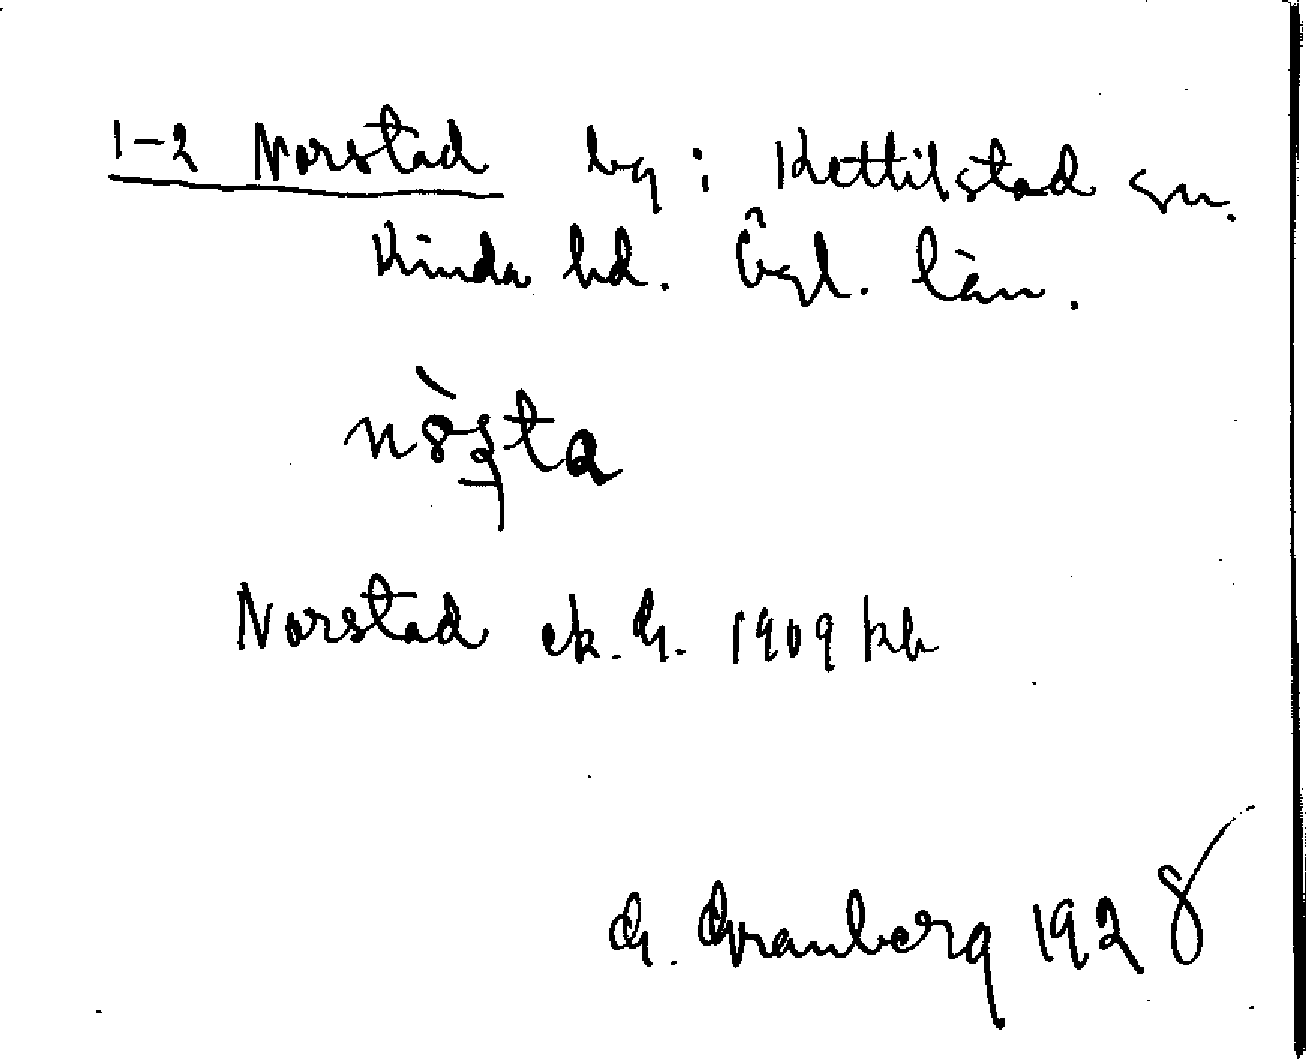 1-2 Norstad by i Kettilstad sn.
Kinda hd. Ögl. län.
Norstad ek. G. 1909 kb
G. Granberg 1928